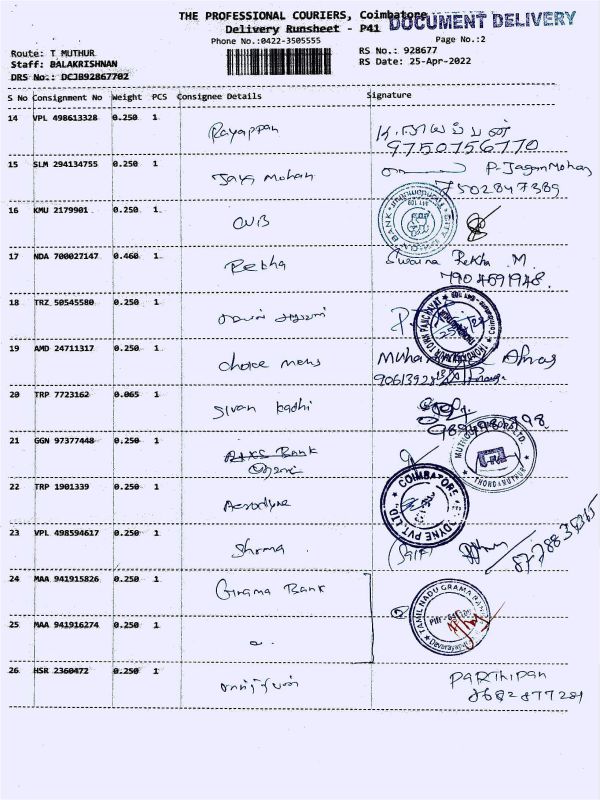 THE PROFESSIONAL COURIERS, Coimbatore
DOCUMENT DELIVERY
Delivery Runsheet - P41
Phone No.:0422-3505555
Page No.:2
Route: T MUTHUR
Staff: BALAKRISHNAN
DRS No.: DCJB92867702
RS No.: 928677
RS Date: 25-Apr-2022
S No Consignment No Weight PCS Consignee Details Signature
14 VPL 498613328 0.250 1 Rayappan
9750756770
15 SLM 294134755 0.250 1 Jaya Mohan P. Jagan Mohan
7502847389
16 KMU 2179901 0.250 1 CUB
17 NDA 700027147 0.460 1 Rekha Swarna Rekha M
7904691948.
18 TRZ 50545580 0.250 1
19 AMD 24711317 0.250 1 choice mens
20 TRP 7723162 0.065 1 Sivan
21 GGN 97377448 0.250 1 Bank
22 TRP 1901339 0.250 1 Aerodyne
COIMBATORE AERODYNE PVT. LTD.
23 VPL 498594617 0.250 1 Sharma
24 MAA 941915826 0.250 1 Grama Bank
TAMIL NADU GRAMA BANK
25 MAA 941916274 0.250 1
26 HSR 2360472 0.250 1 PARTHIPAN
8682877281